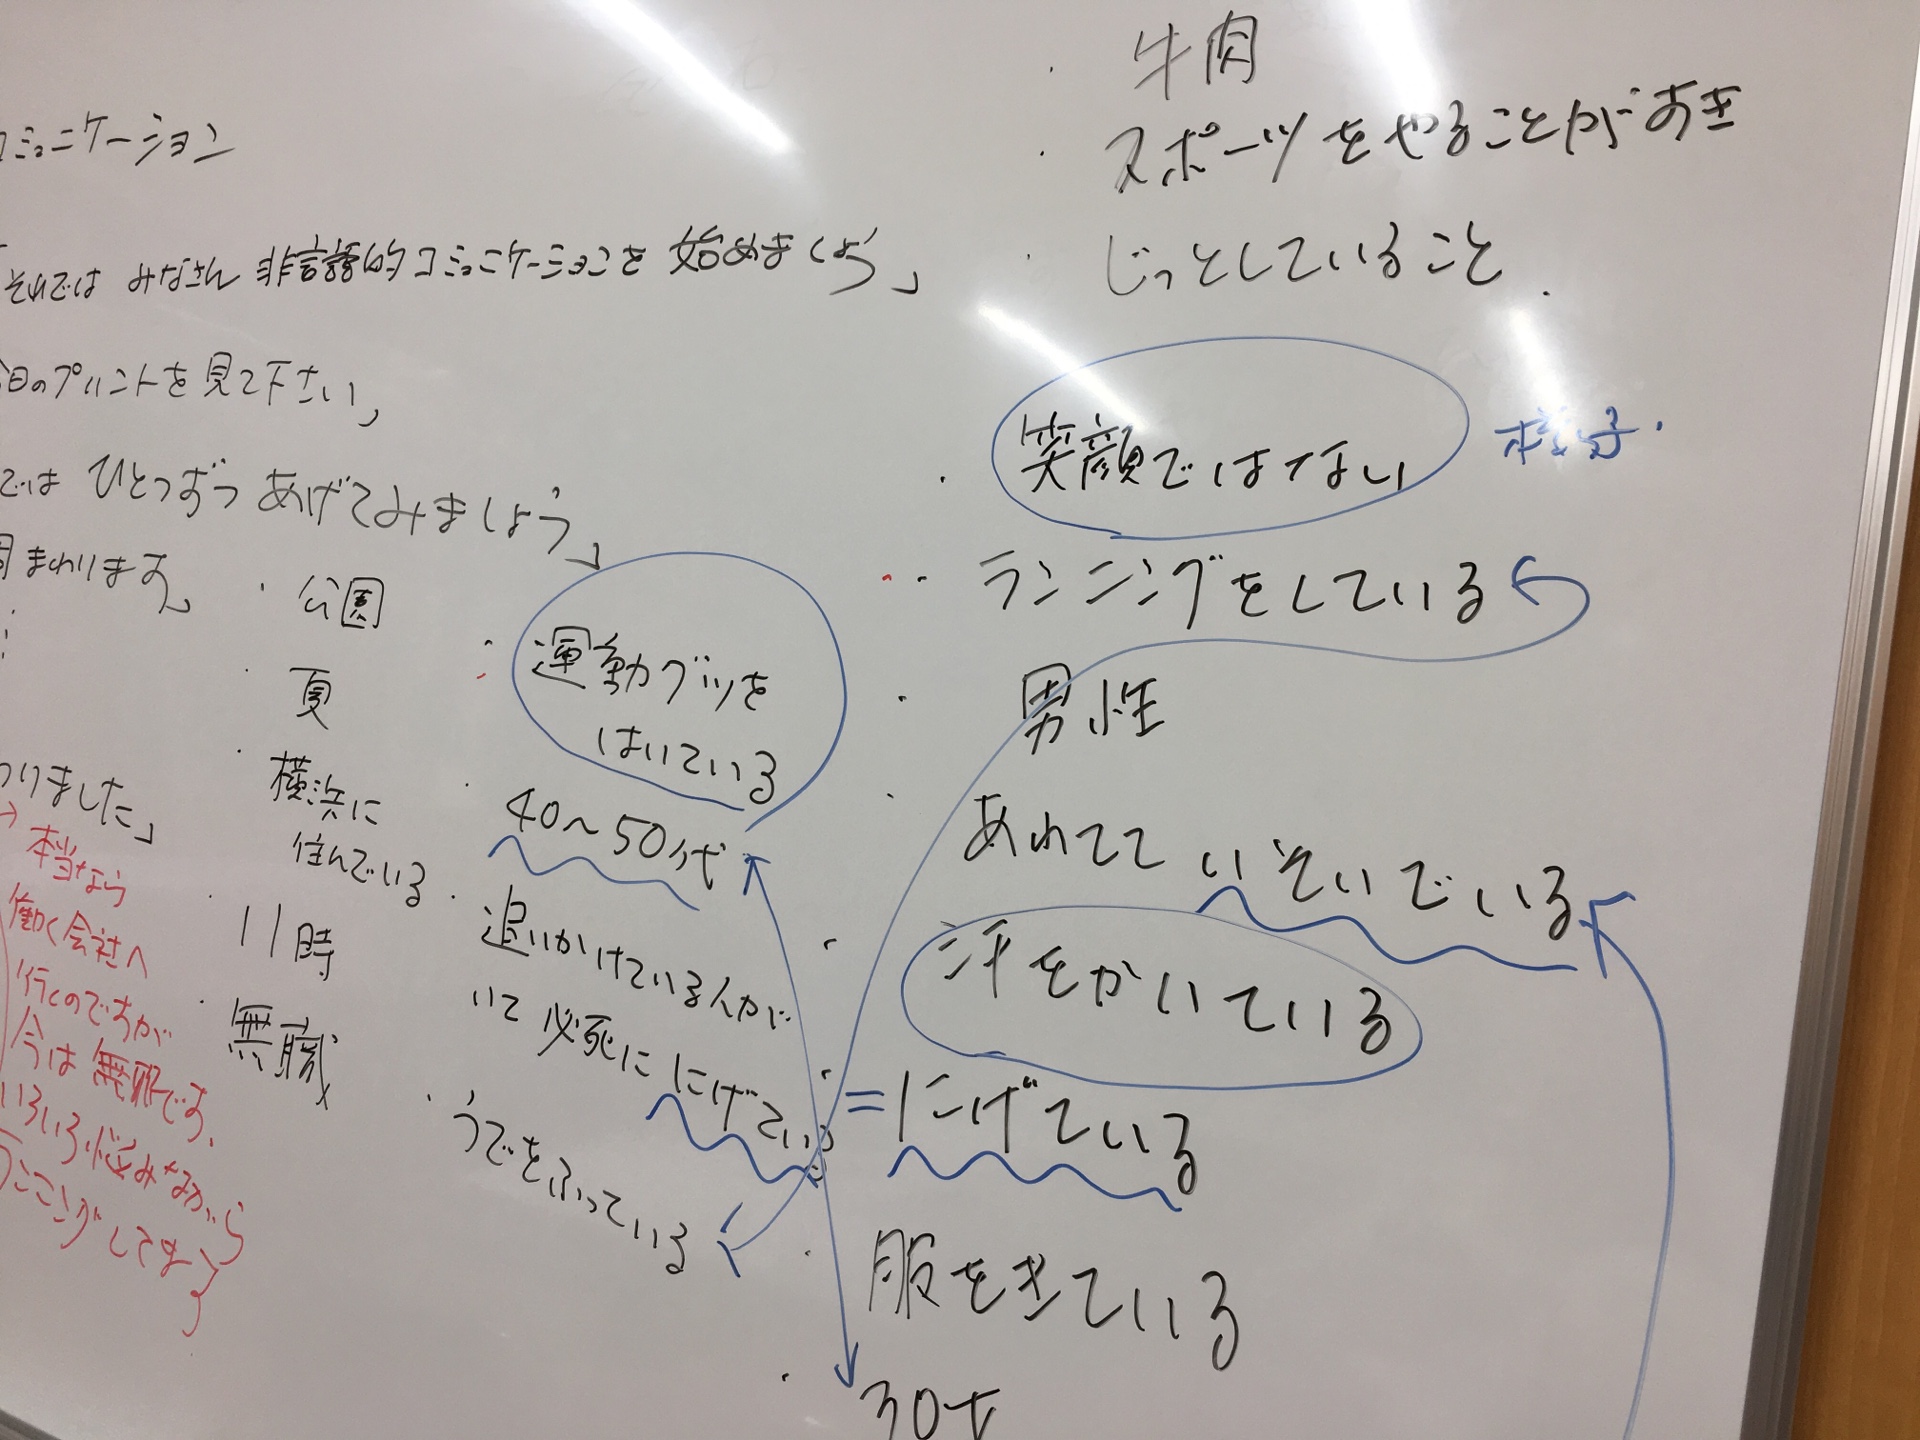 コミュニケーション
それでは みなさん 非言語的コミュニケーションを 始めましょう」
今日のプリントを見て下さい」
では ひとつずつ あげてみましょう」
周まわります」
わりました」
→ 本当なら
働く会社へ
行くのですが
今は無職です。
いろいろ悩みながら
ランニングしてま
・公園
・夏
・横浜に
住んでいる
・11時
・無職
・運動グツを
はいている
・40〜50代
・追いかけている人が
いて 必死に にげている
・うでをふっている
・牛肉
・スポーツをやることがすき
・じっとしていること
・笑顔ではない
様子・
・ランニングをしている
・男性
・あわてて いそいでいる
・汗をかいている
・=にげている
・服をきている
・30才